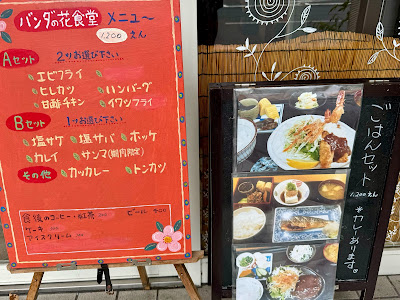 パンダの花食堂 メニュ〜
1,200えん
Aセット 2つお選び下さい
エビフライ
ヒレカツ ハンバーグ
甘酢チキン イワシフライ
Bセット 1つお選び下さい
塩サケ 塩サバ ホッケ
カレイ サンマ(期間限定)
その他 カツカレー トンカツ
食後のコーヒー・紅茶
ビール
ケーキ
アイスクリーム
ごはんセット
1,200えん
*カレーあります。